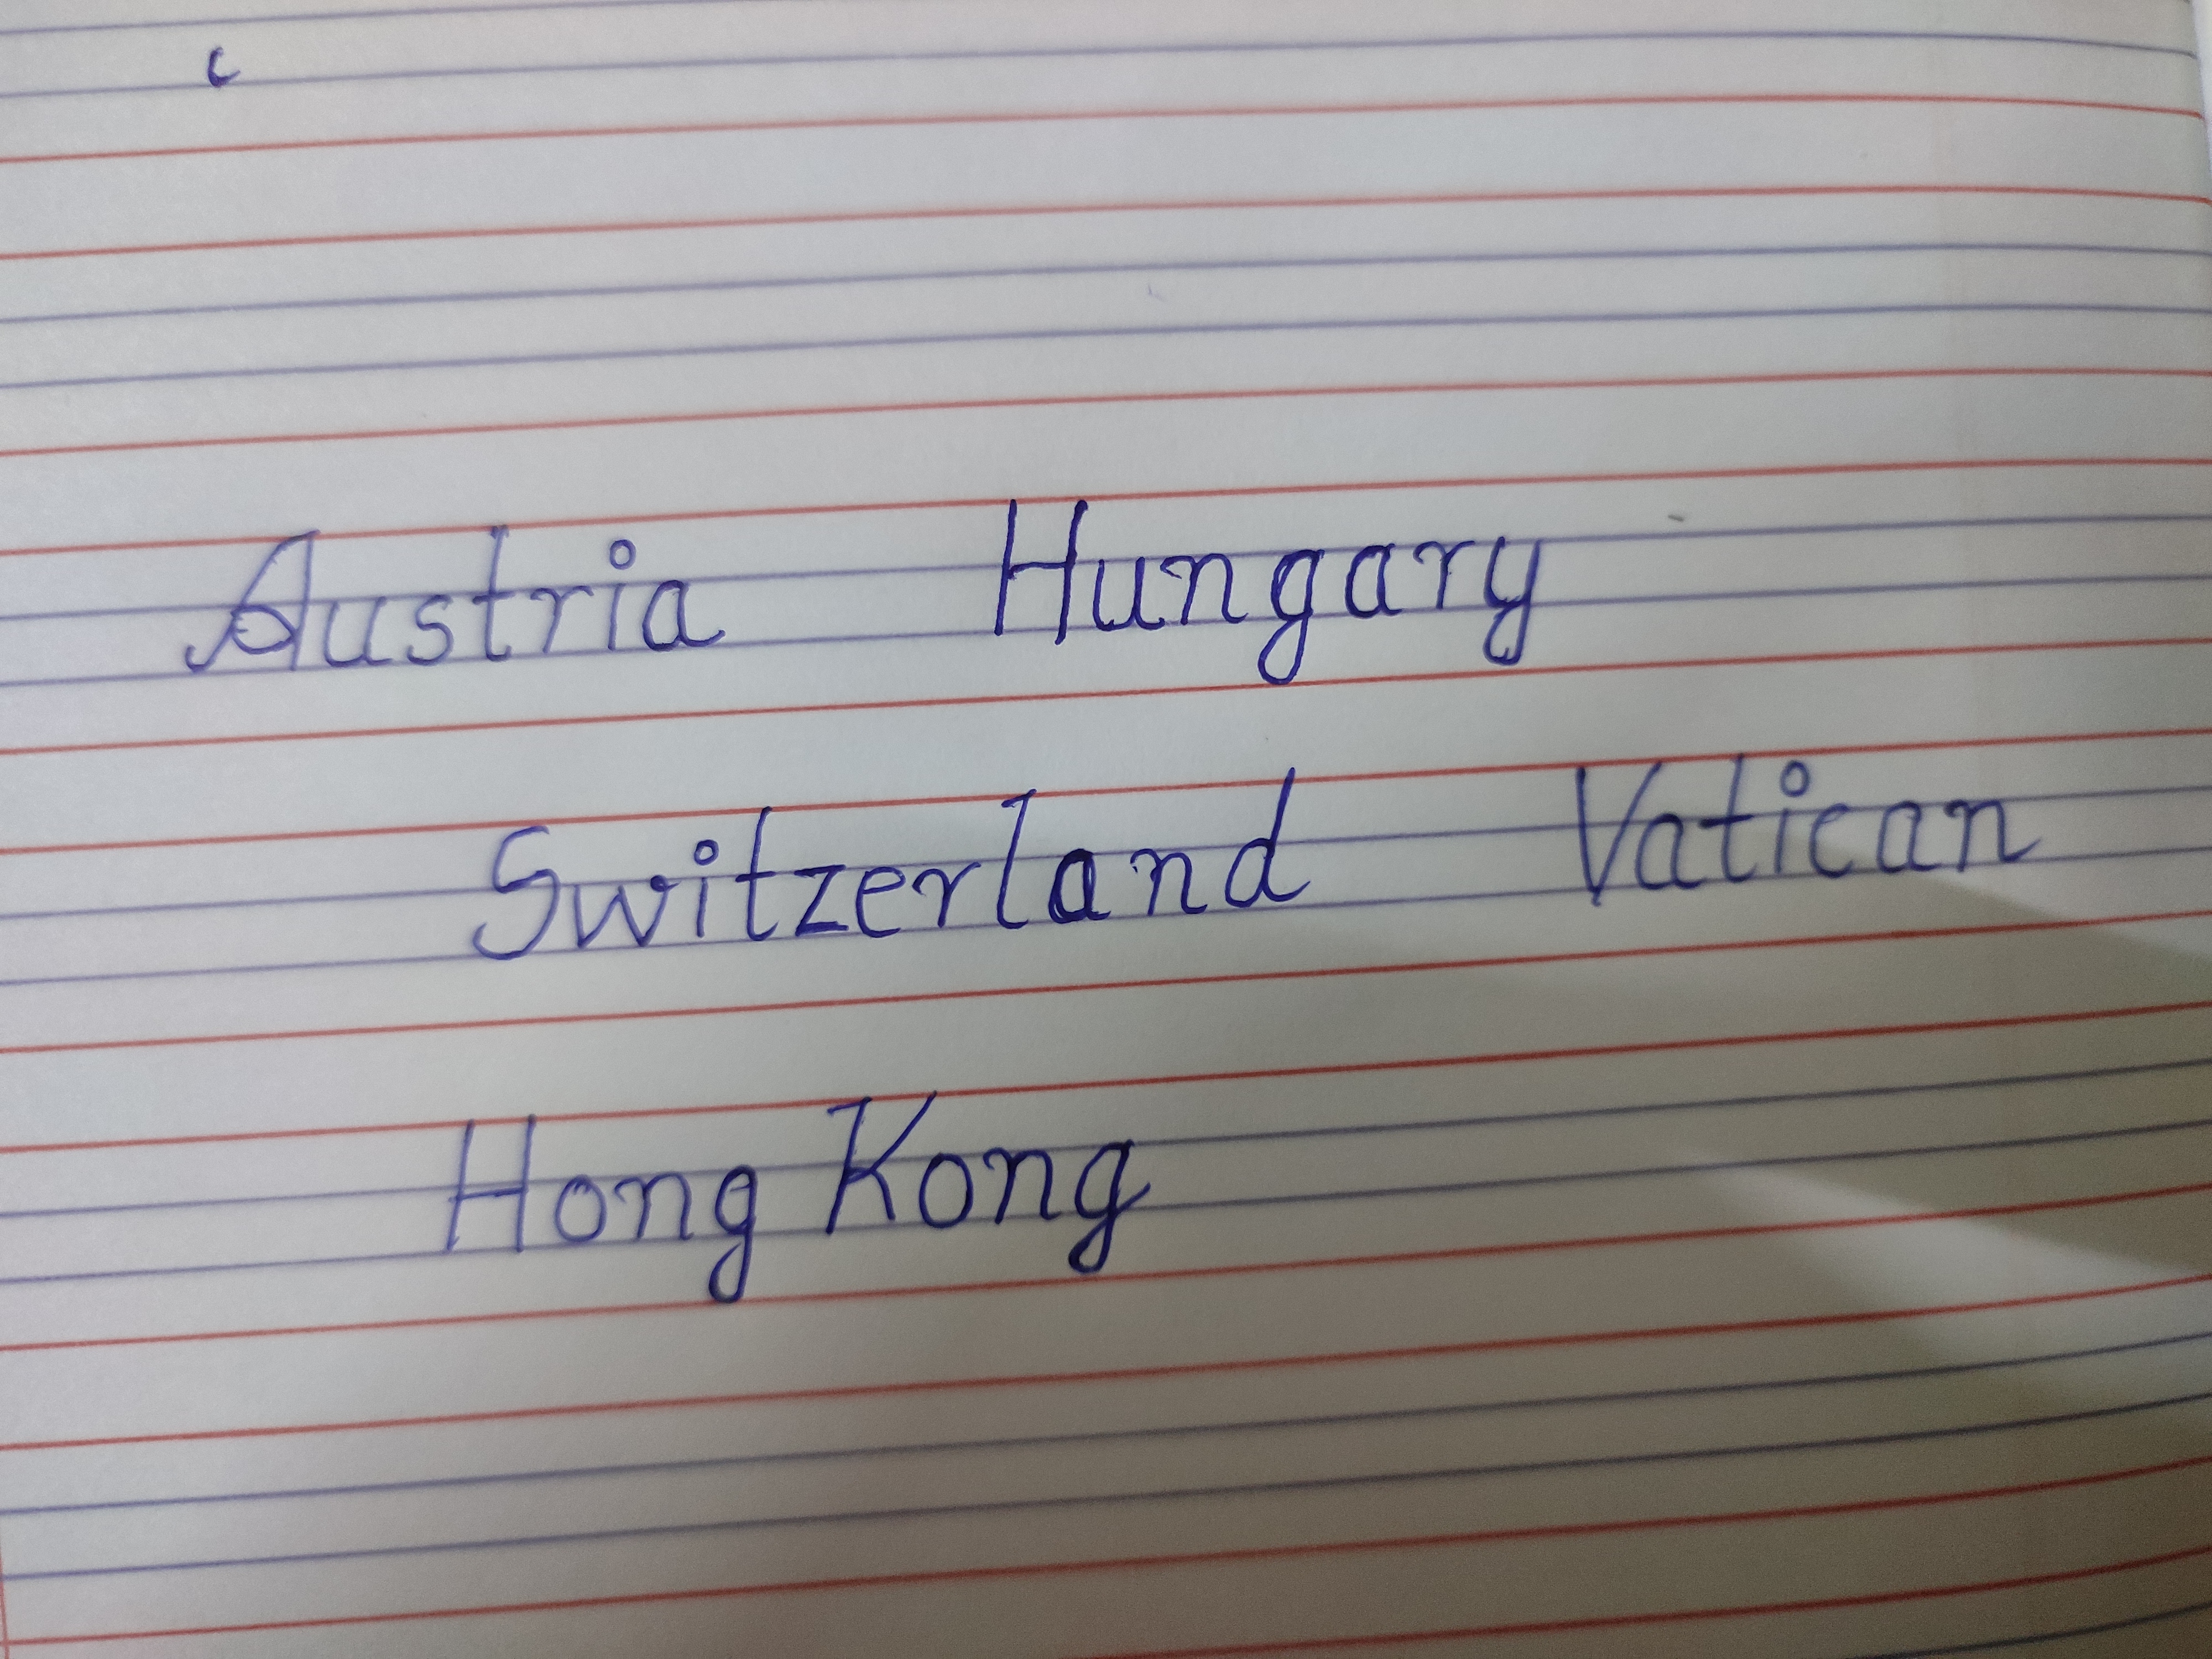 Austria Hungary
Switzerland Vatican
Hong Kong